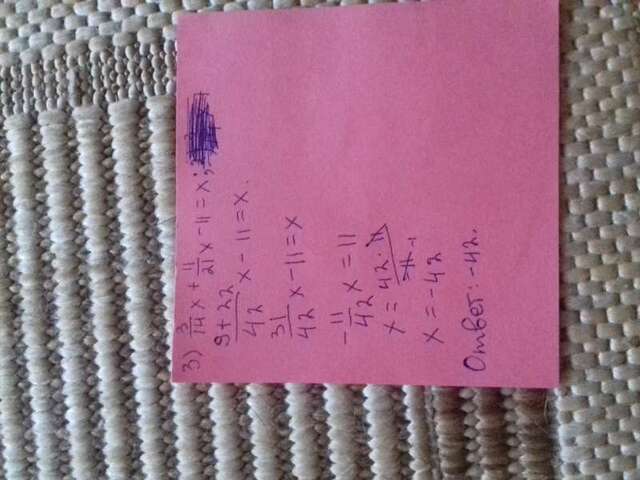 3) 3/14 x + 11/21 x - 11 = x;
9+22/42 x - 11 = x.
31/42 x - 11 = x
- 11/42 x = 11
x = 42 · 11/-11 -1
x = -42
Ответ: -42.